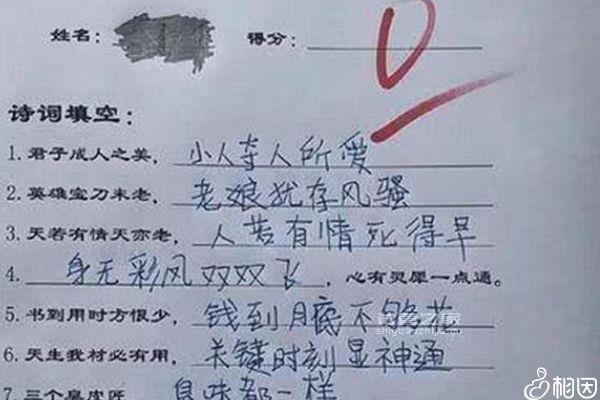 姓名： 得分： 0
诗词填空：
1. 君子成人之美， 小人夺人所爱
2. 英雄宝刀未老， 老娘犹存风骚
3. 天若有情天亦老， 人若有情死得早
4. 身无彩风双双飞 ，心有灵犀一点通。
5. 书到用时方恨少， 钱到月底不够花
6. 天生我材必有用， 关键时刻显神通
7. 三个臭皮匠 臭味都一样
试管之家
shiguanzhijia.cn
相因